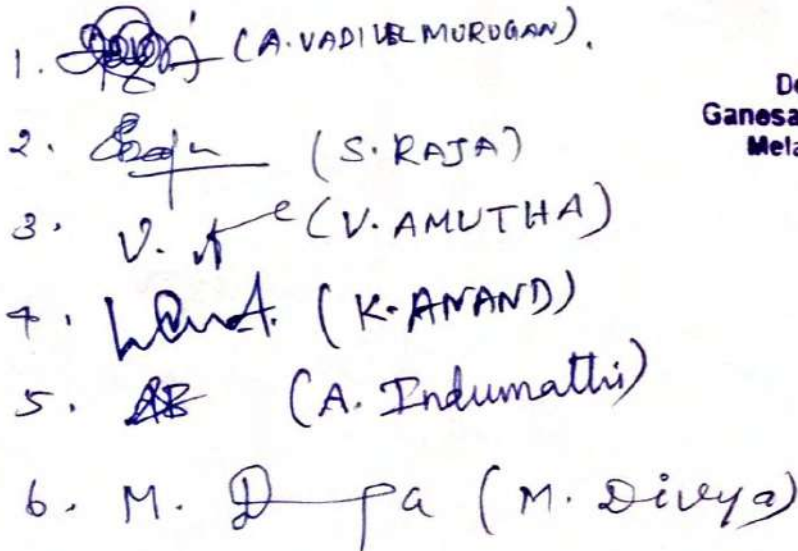 1. (A. VADIVEL MURUGAN).
2. (S. RAJA)
3. V. (V. AMUTHA)
4. (K. ANAND)
5. (A. Indumathi)
6. M. (M. Divya)
De
Ganesa
Mela